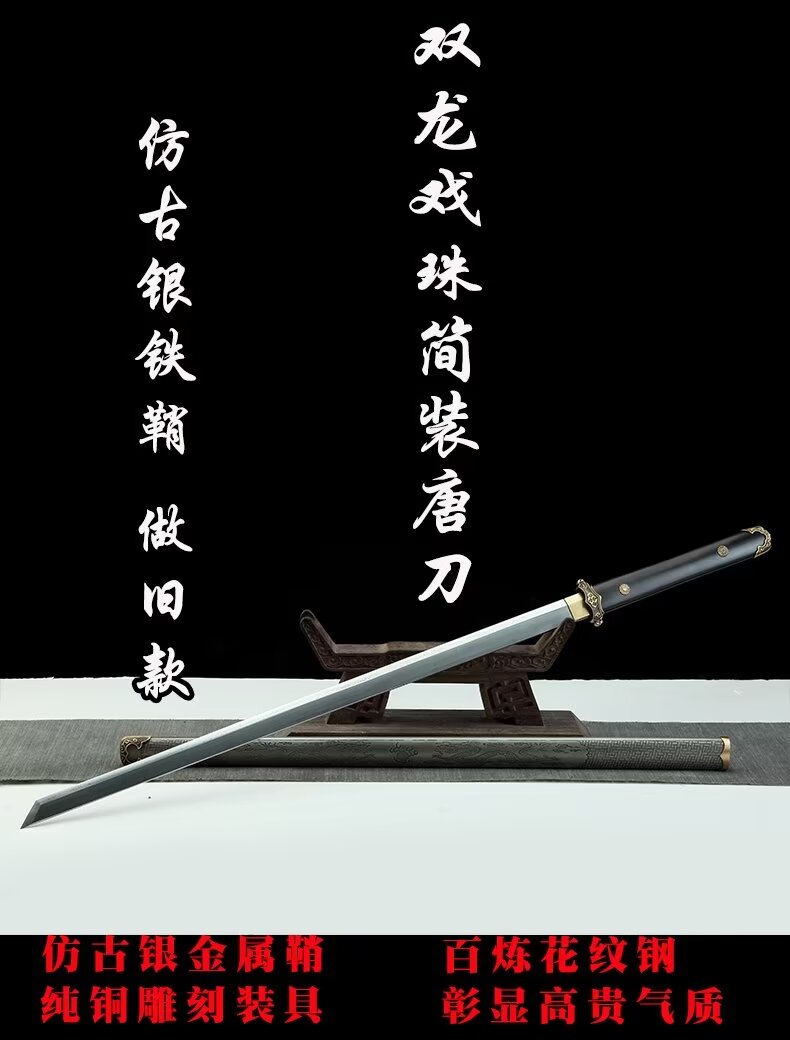 双龙戏珠简装唐刀
仿古银铁鞘 做旧款
仿古银金属鞘
百炼花纹钢
纯铜雕刻装具
彰显高贵气质